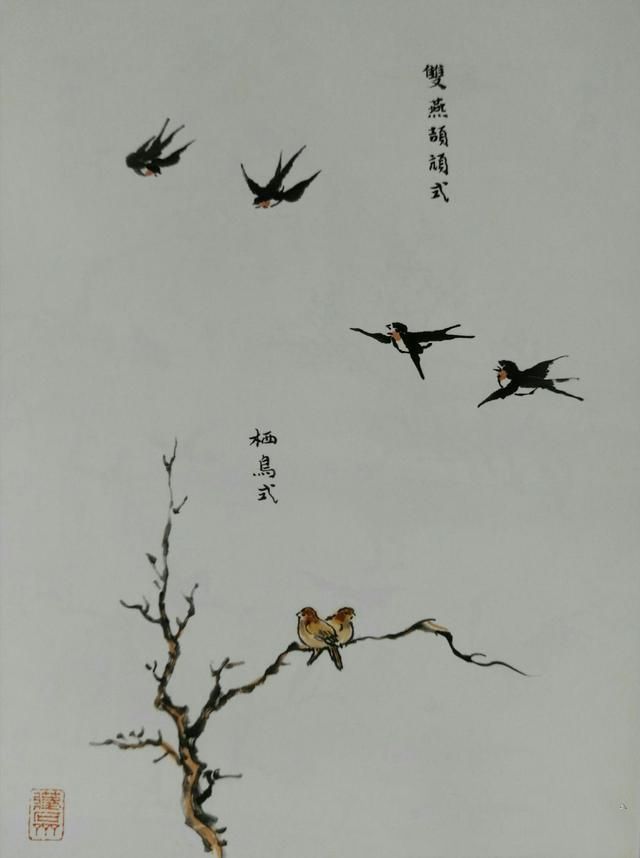 雙燕頡頏式
栖鳥式